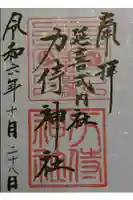 奉拝
延喜式内社
方侍神社
令和六年十月二十八日